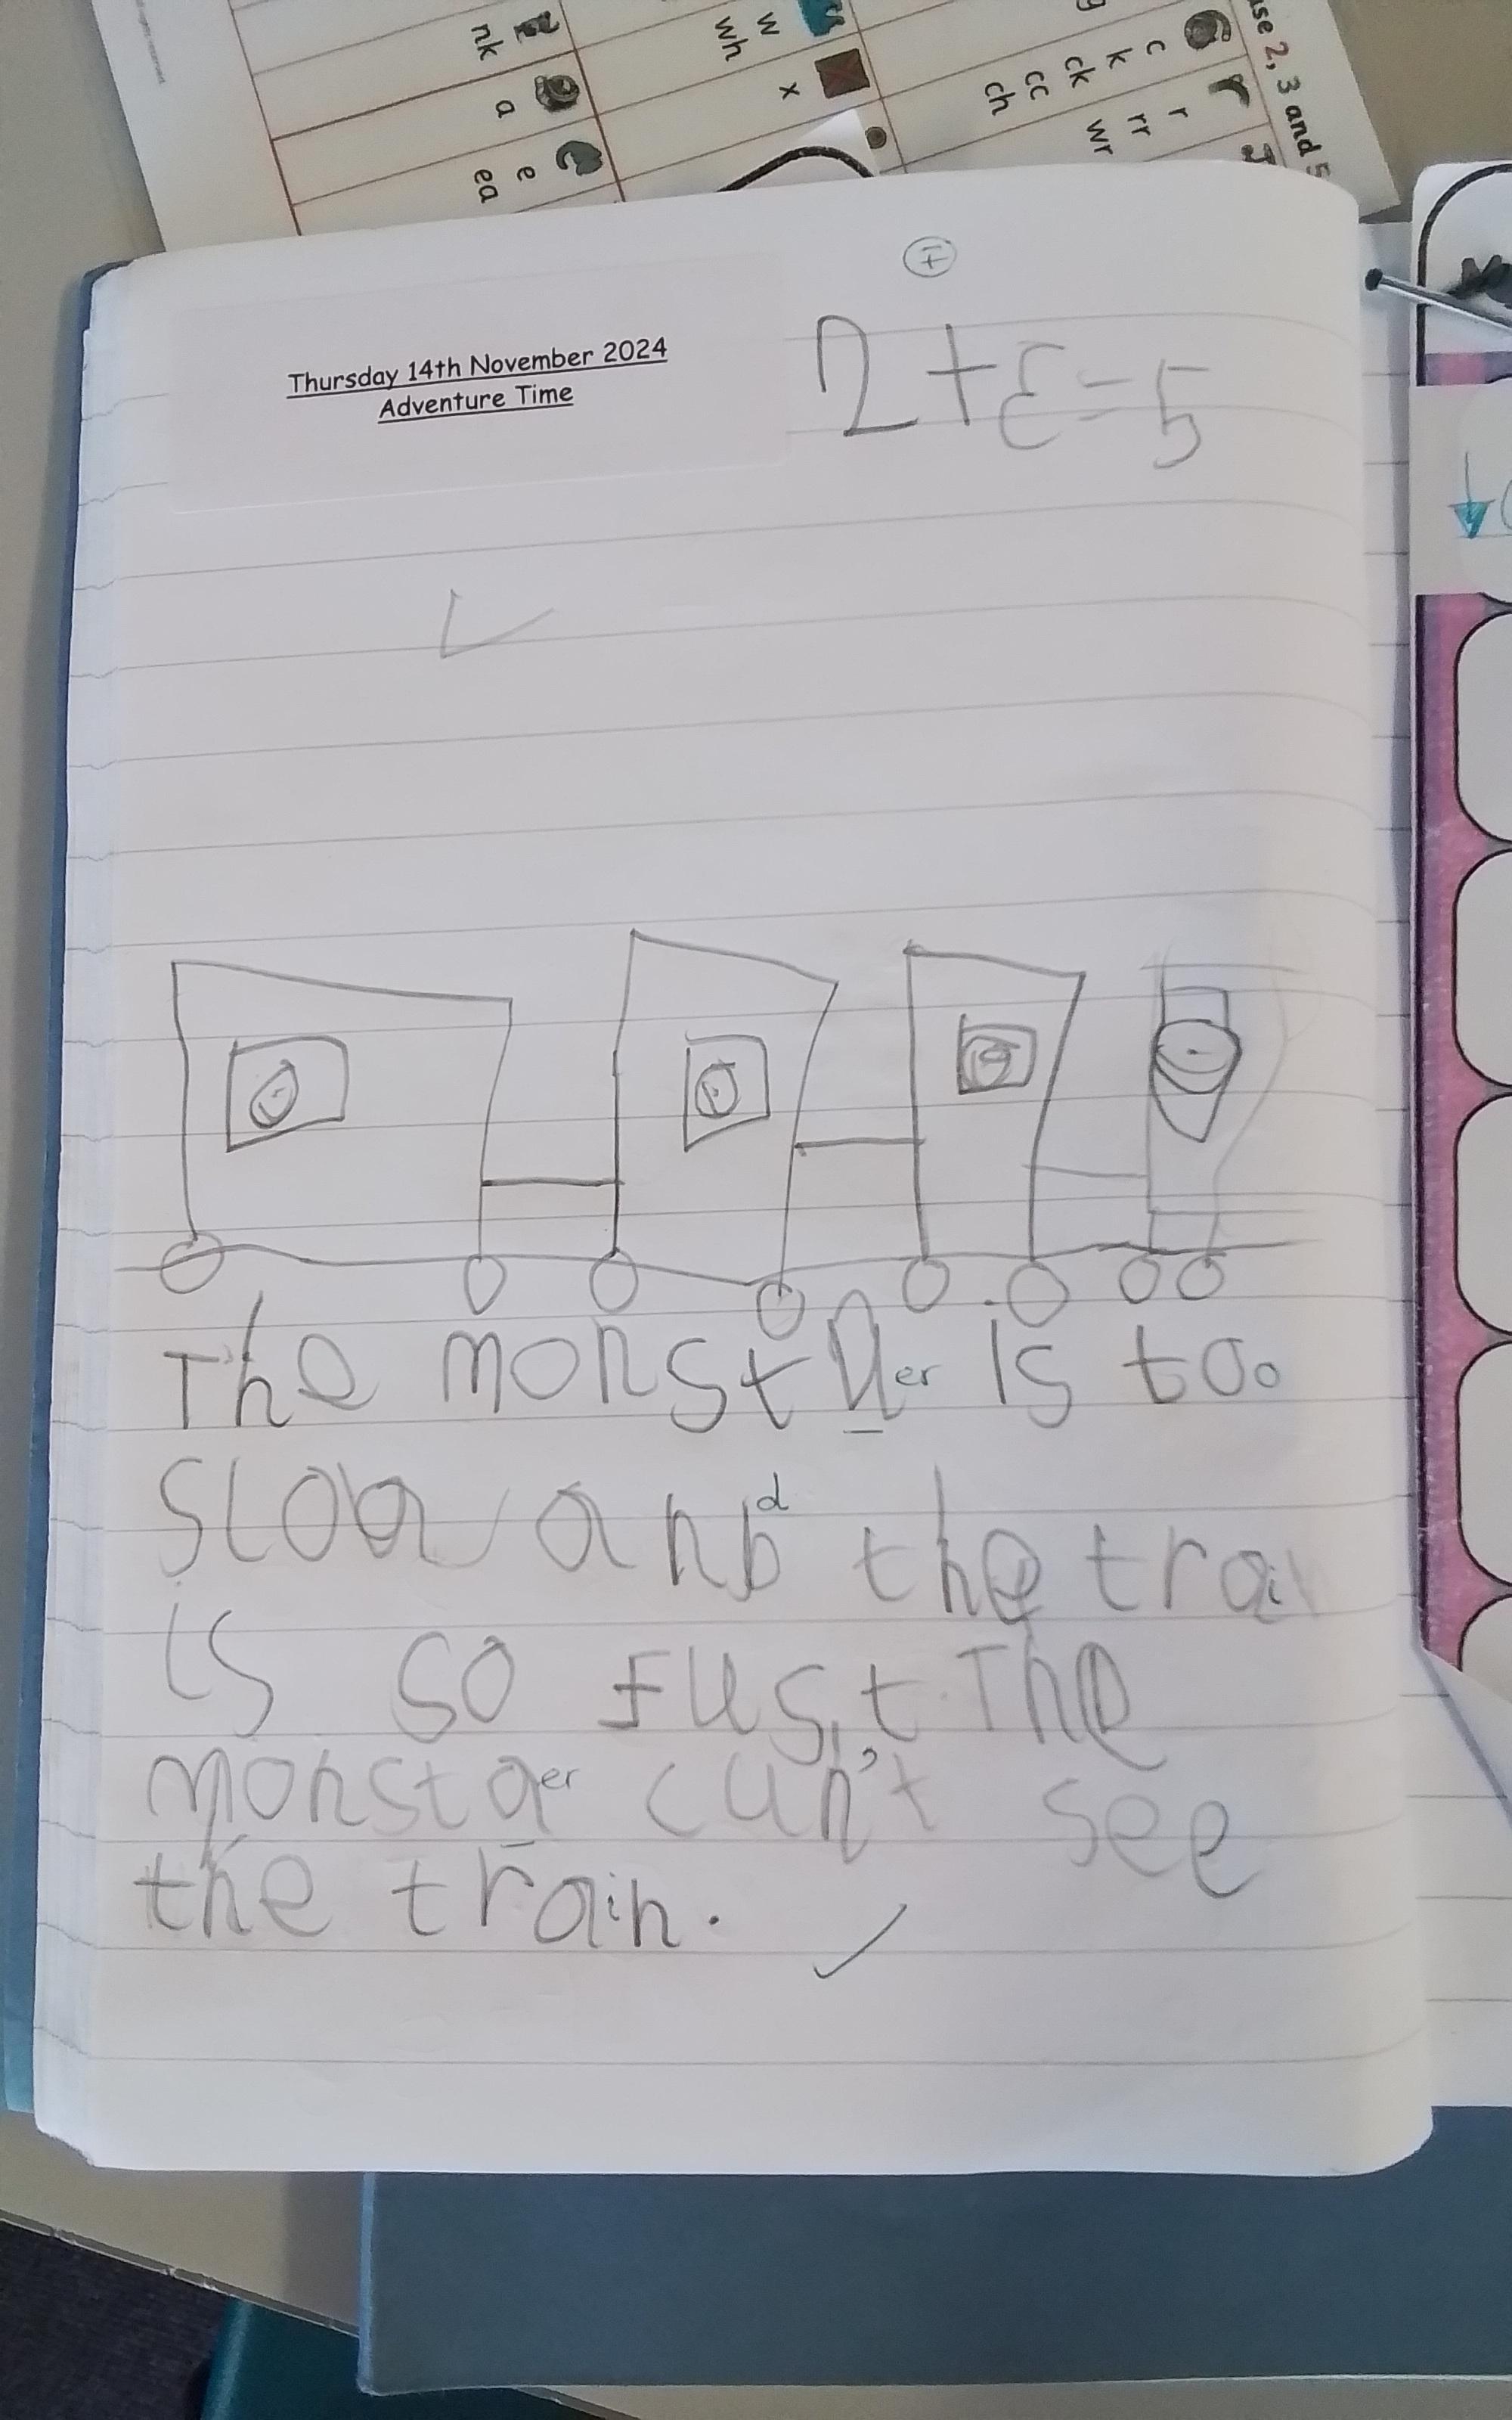 use 2, 3 and 5
c r
k rr
ck wr
cc
ch
w x
wh
nk a e
ea
Thursday 14th November 2024
Adventure Time
2+3=5
The monst er is too
sloa anb d the trai
is so fust. The
monsta er cun't see
the train.